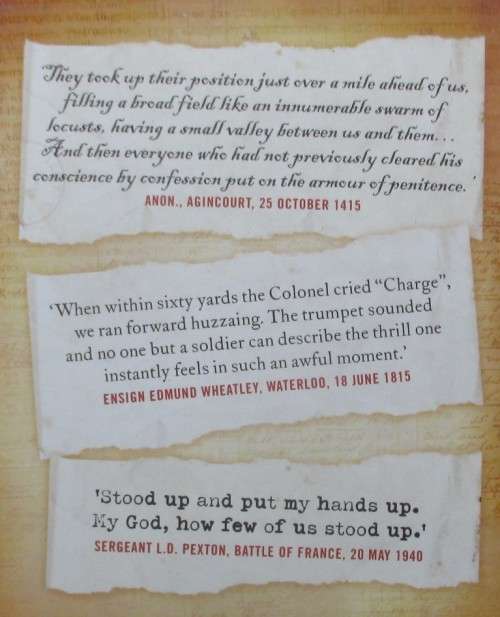 They took up their position just over a mile ahead of us,
filling a broad field like an innumerable swarm of
locusts, having a small valley between us and them...
And then everyone who had not previously cleared his
conscience by confession put on the armour of penitence.'
ANON., AGINCOURT, 25 OCTOBER 1415
'When within sixty yards the Colonel cried "Charge",
we ran forward huzzaing. The trumpet sounded
and no one but a soldier can describe the thrill one
instantly feels in such an awful moment.'
ENSIGN EDMUND WHEATLEY, WATERLOO, 18 JUNE 1815
'Stood up and put my hands up.
My God, how few of us stood up.'
SERGEANT L.D. PEXTON, BATTLE OF FRANCE, 20 MAY 1940